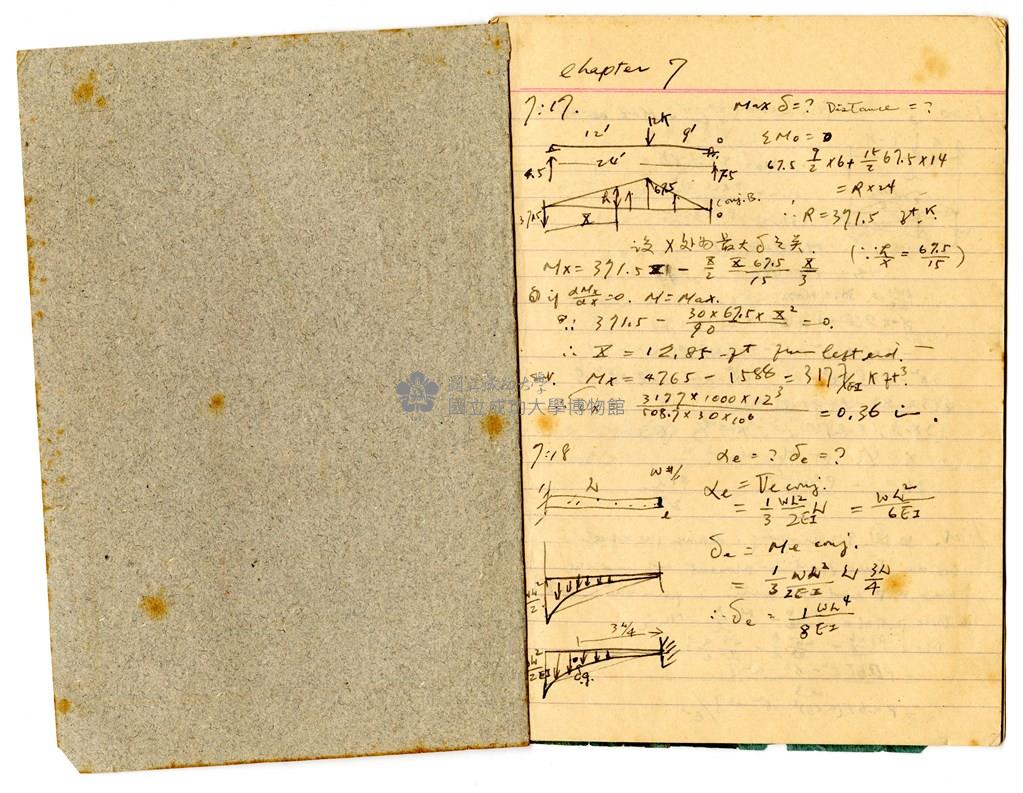 Chapter 7
7:17. Max δ=? Distance = ?
12' 12K 9'
ΣMo = 0
24'
67.5 9/2 ×6 + 15/2 67.5×14
4.5 7.5
= R×24
67.5 Conj. B.
h X
∴ R = 371.5 ft².K.
设 X 处为最大 δ 之关. (∵ h/X = 67.5/15)
Mx = 371.5 X - X/2 X 67.5/15 X/3
if dMx/dx = 0. M = Max.
∴ 371.5 - 30×67.5×X²/90 = 0.
∴ X = 12.85 ft from left end.
Mx = 4765 - 1588 = 3177/EI K ft³.
3177×1000×12³/508.7×30×10⁶ = 0.36 in.
國立成功大學
國立成功大學博物館
7:18 αe = ? δe = ?
w#/'
L
αe = Ve conj.
= 1/3 wL²/2EI L = wL²/6EI
e
δe = Me conj.
wL²/2
= 1/3 wL²/2EI L 3L/4
∴ δe = 1/8 wL⁴/EI
3L/4
wL²/2EI
c.g.